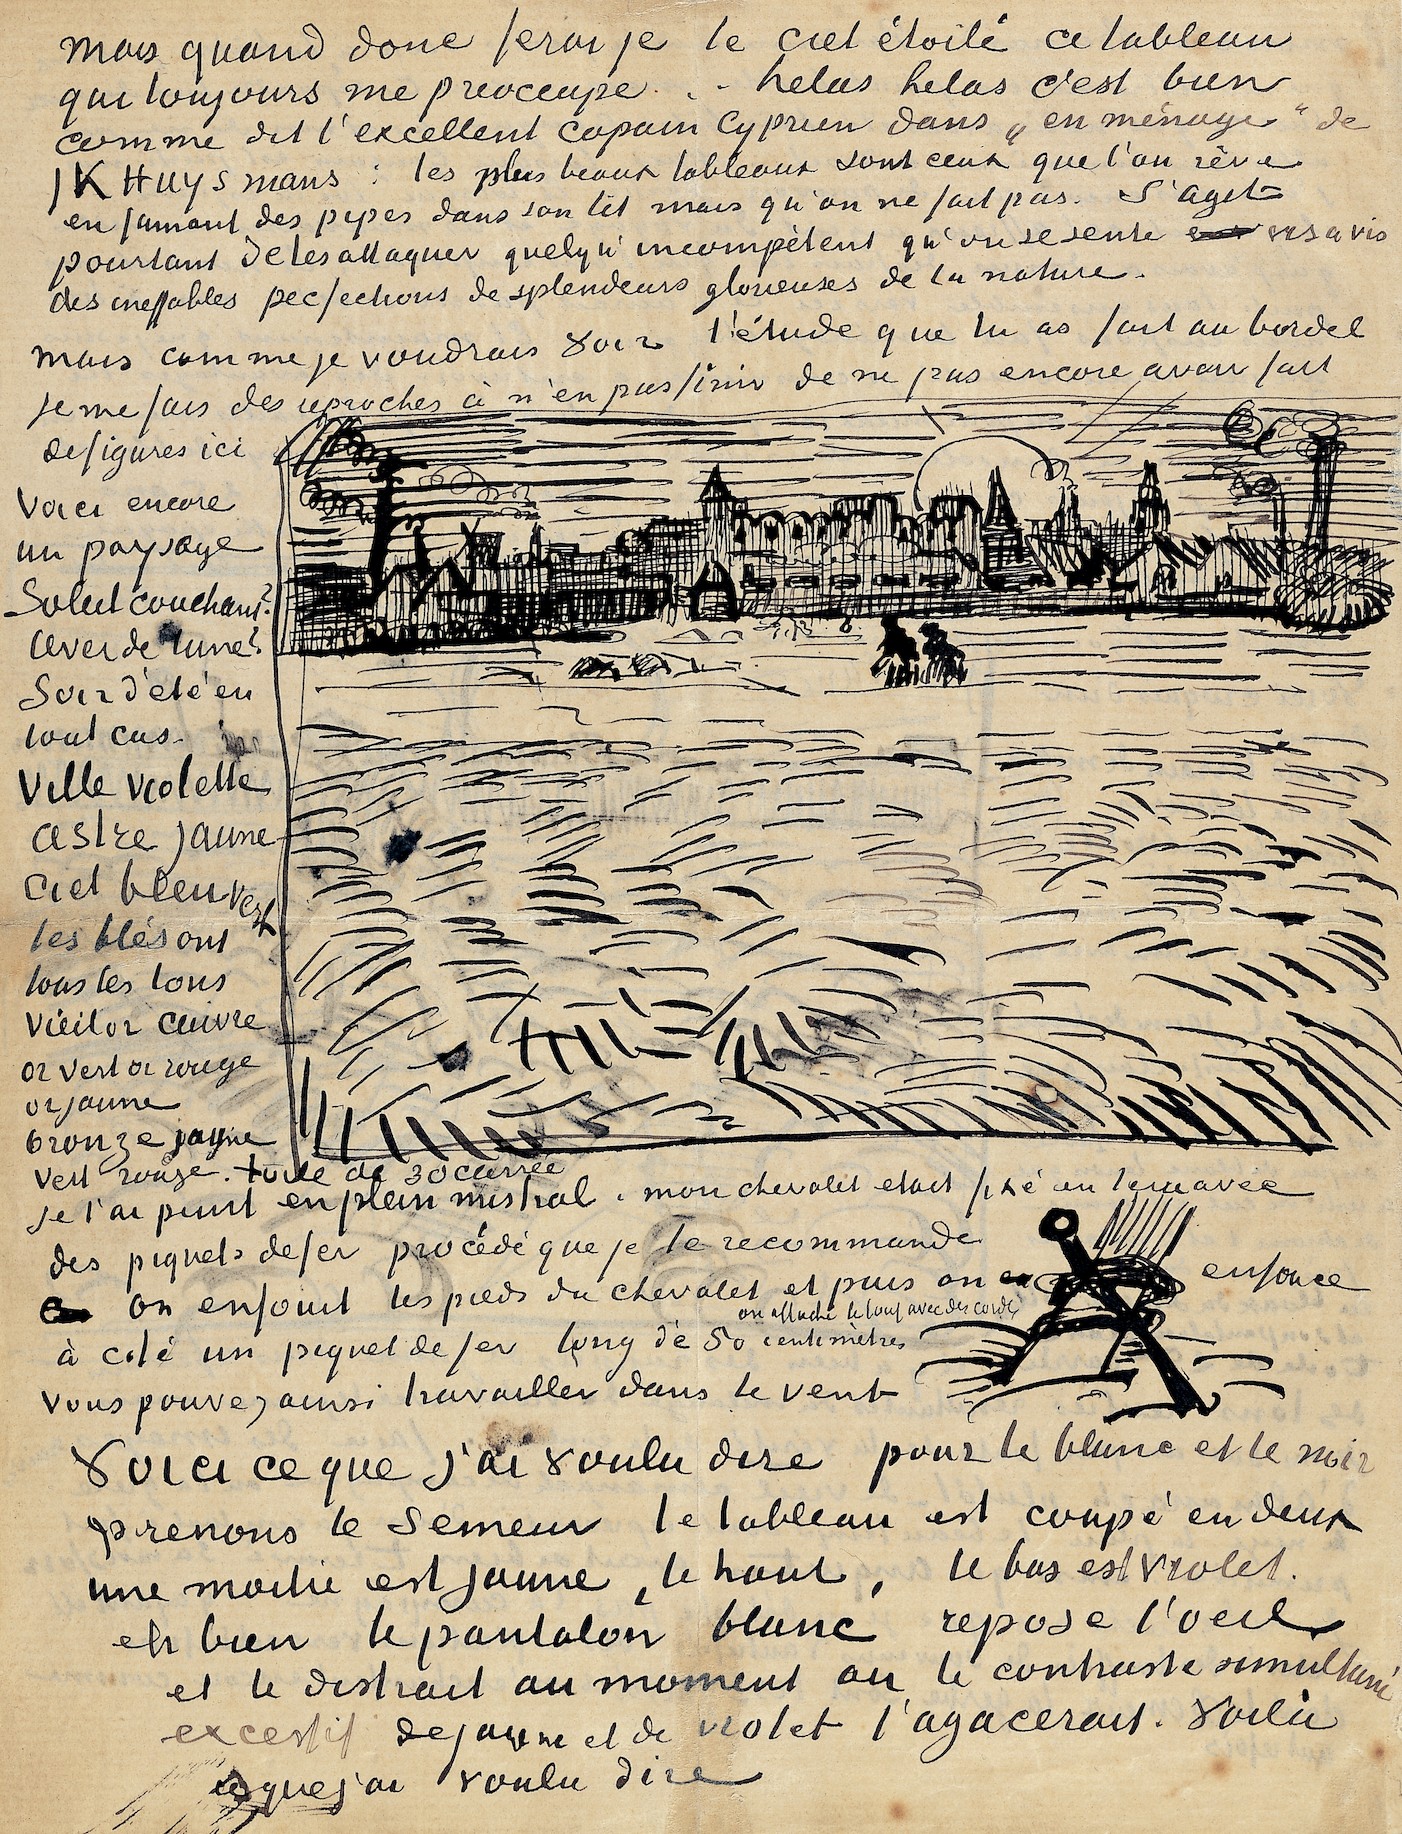 mais quand donc ferai je le ciel étoilé ce tableau
qui toujours me préoccupe. . - helas helas c'est bien
comme dit l'excellent copain Cyprien dans „en ménage" de
J K Huysmans : les plus beaux tableaux sont ceux que l'on rêve
en fumant des pipes dans son lit mais qu'on ne fait pas. S'agit
pourtant de les attaquer quelqu'incompétent qu'on se sente vis a vis
des ineffables perfections de splendeurs glorieuses de la nature.
mais comme je voudrais voir l'étude que tu as fait au bordel
je me fais des reproches à n'en pas finir de ne pas encore avoir fait
de figures ici
Voici encore
un paysage
Soleil couchant?
lever de lune?
Soir d'été en
tout cas.
Ville violette
astre jaune
ciel bleu vert
les blés ont
tous les tons
vieil or cuivre
or vert or rouge
or jaune
bronze jaune
vert rouge. toile de 30 carrée
je l'ai peint en plein mistral. mon chevalet etait fixé en terre avec
des piquets de fer procédé que je te recommande
on enfouit les pieds du chevalet et puis on enfonce
à côté un piquet de fer long de 50 centimètres
on attache le tout avec des cordes
vous pouvez ainsi travailler dans le vent
Voici ce que j'ai voulu dire pour le blanc et le noir
prenons le Semeur le tableau est coupé en deux
une moitié est jaune, le haut, le bas est violet.
eh bien le pantalon blanc repose l'oeil
et le distrait au moment ou le contraste simultané
excessif de jaune et de violet l'agacerait. Voilà
ce que j'ai voulu dire